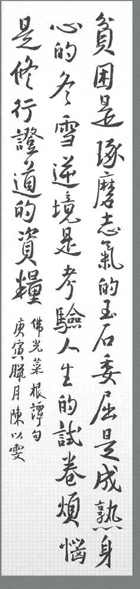 貧困是琢磨志氣的玉石委屈是成熟身
心的冬雪逆境是考驗人生的試卷煩惱
是修行證道的資糧
佛光菜根譚句
庚寅臘月陳以雯